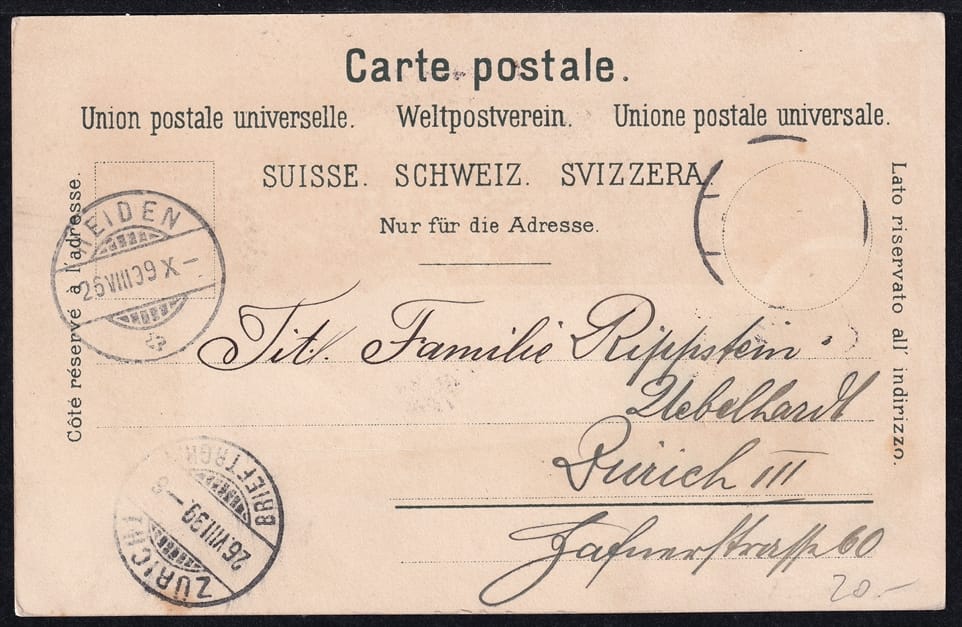 Carte postale.
Union postale universelle. Weltpostverein. Unione postale universale.
SUISSE. SCHWEIZ. SVIZZERA.
Nur für die Adresse.
Côté réservé à l'adresse.
Lato riservato all' indirizzo.
HEIDEN
26 VIII 99 X –
Tit. Familie Rippstein
Uebelhardt
Zürich III
Hafnerstrasse 60
BRIEFTRG
26 VIII 99 – 8
ZÜRICH
20.-